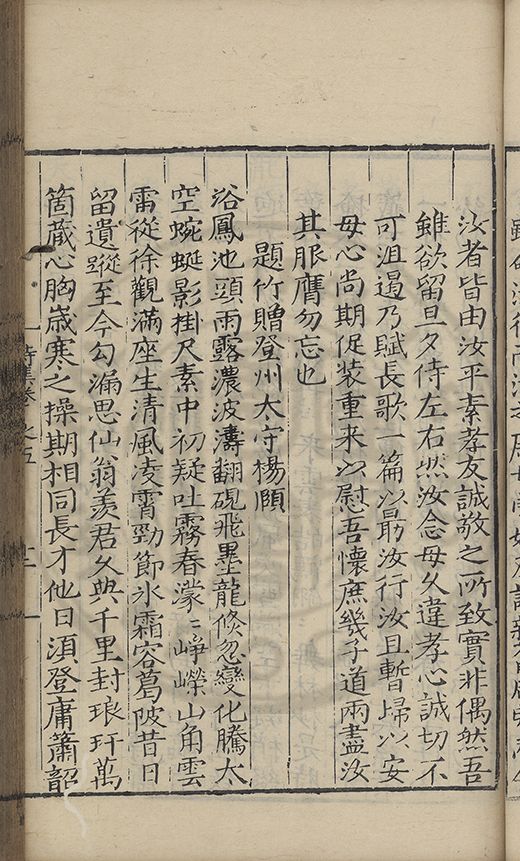 汝者皆由汝平素孝友誠敬之所致實非偶然吾
雖欲留旦夕侍左右然汝念母久違孝心誠切不
可沮遏乃賦長歌一篇以勗汝行汝且暫歸以安
母心尚期促装重来以慰吾懷庶幾子道兩盡汝
其服膺勿忘也
題竹贈登州太守楊頥
浴鳳池頭雨露濃波濤翻硯飛墨龍倐忽變化騰太
空蜿蜒影掛尺素中初疑吐霧春濛〻崢嶸山角雲
雷從徐觀滿座生清風凌霄勁節氷霜容葛陂昔日
留遺蹤至今勾漏思仙翁羨君久與千里封琅玕萬
箇蔵心胸嵗寒之操期相同長才他日湏登庸簫韶